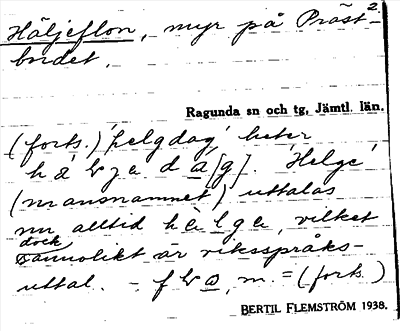 Häljeflon, myr på Präst-2
bordet.
Ragunda sn och tg, Jämtl. län.
(forts.) 'helgdag' heter
'Helge'
(mansnamnet) uttalas
nu alltid hèlge, vilket
dock
sannolikt är riksspråks-
uttal. - m. = (forts.)
BERTIL FLEMSTRÖM 1938.